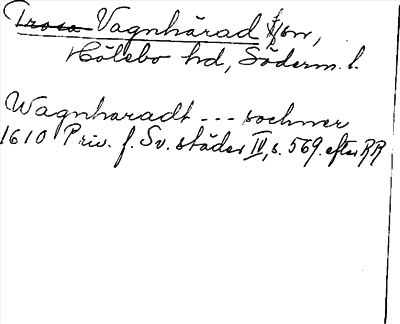 Trosa Vagnhärad
Hölebo hd, Söderm. l.
Wagnharadt --- sochner
1610 Priv. f. Sv. städer IV, s. 569. efter RR